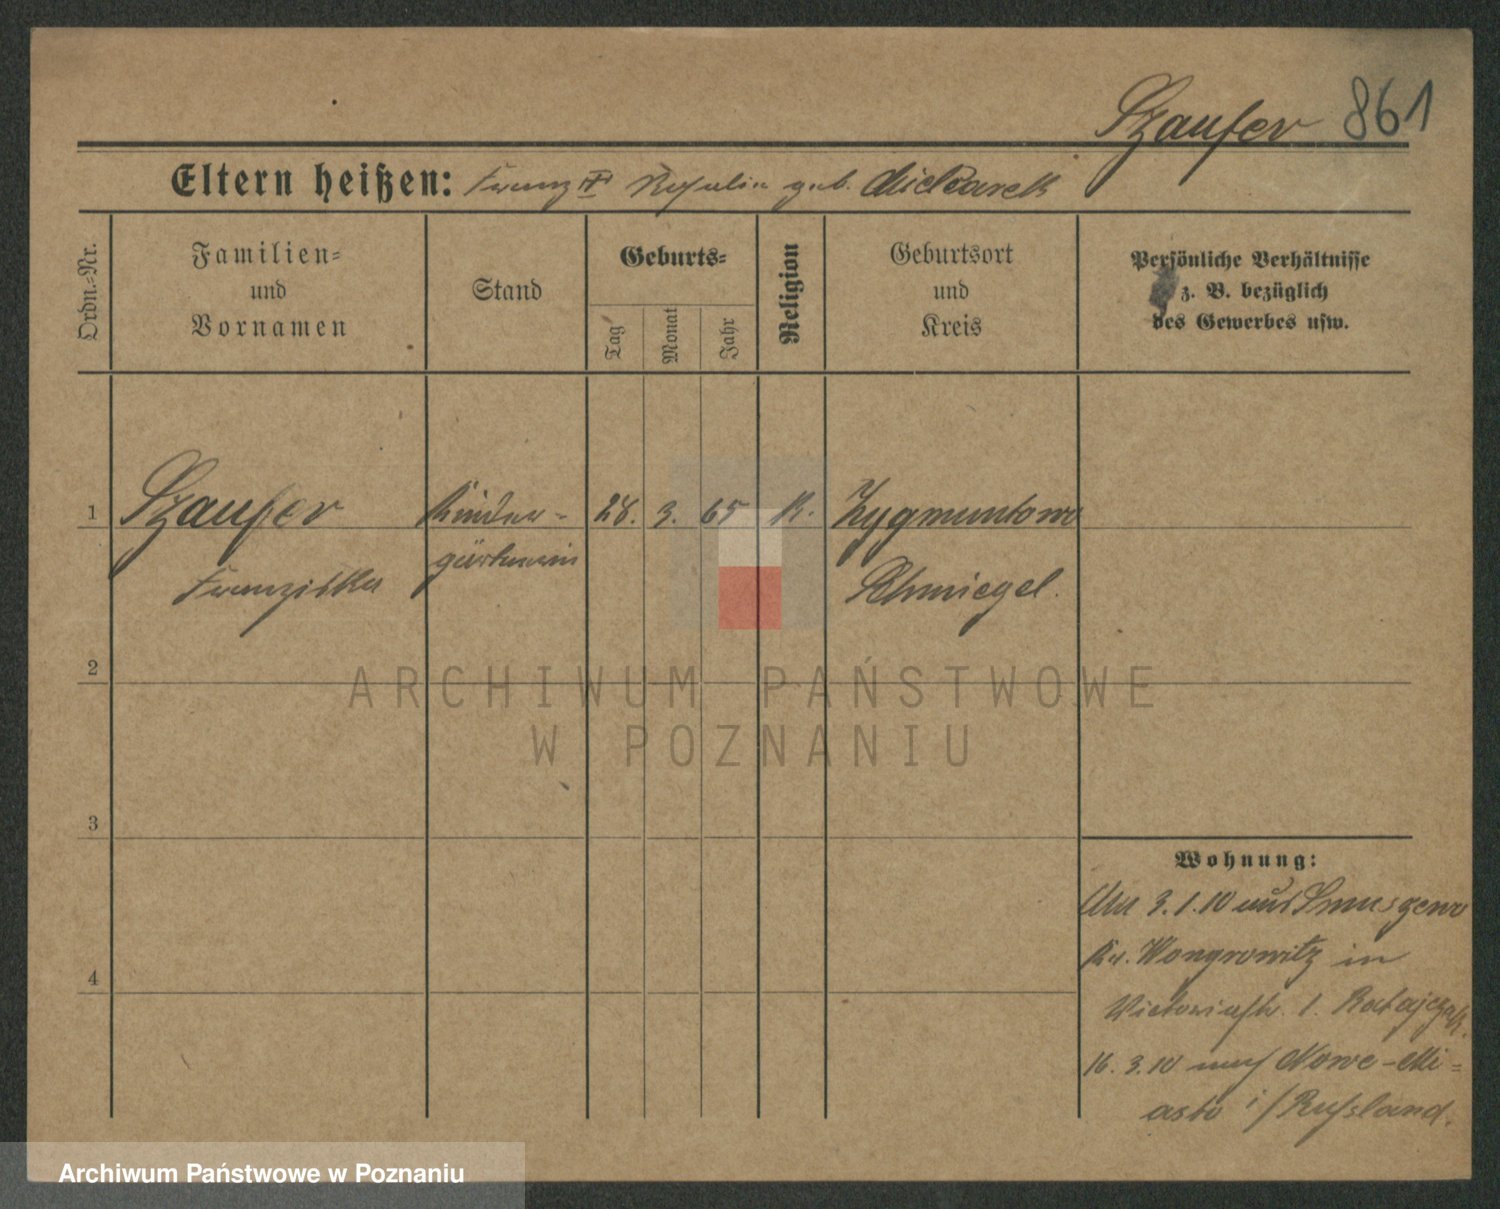 Szaufer 861
Eltern heißen: Franz Rosalia geb. Mielcarek
Ordn.=Nr.
Familien=
und
Vornamen
Stand
Geburts=
Tag
Monat
Jahr
Religion
Geburtsort
und
Kreis
Persönliche Verhältnisse
z. B. bezüglich
des Gewerbes usw.
1 Szaufer Kinder- 28. 3. 65 K. Zygmuntowo
Franziska gärtnerin Schmiegel.
2
3
4
Wohnung:
3.1.10 aus
Kr. Wongrowitz in
Victoriastr. 1. Ratajczak.
16.3.10 nach Nowe-Mi=
asto i/Russland.
ARCHIWUM PAŃSTWOWE
W POZNANIU
Archiwum Państwowe w Poznaniu